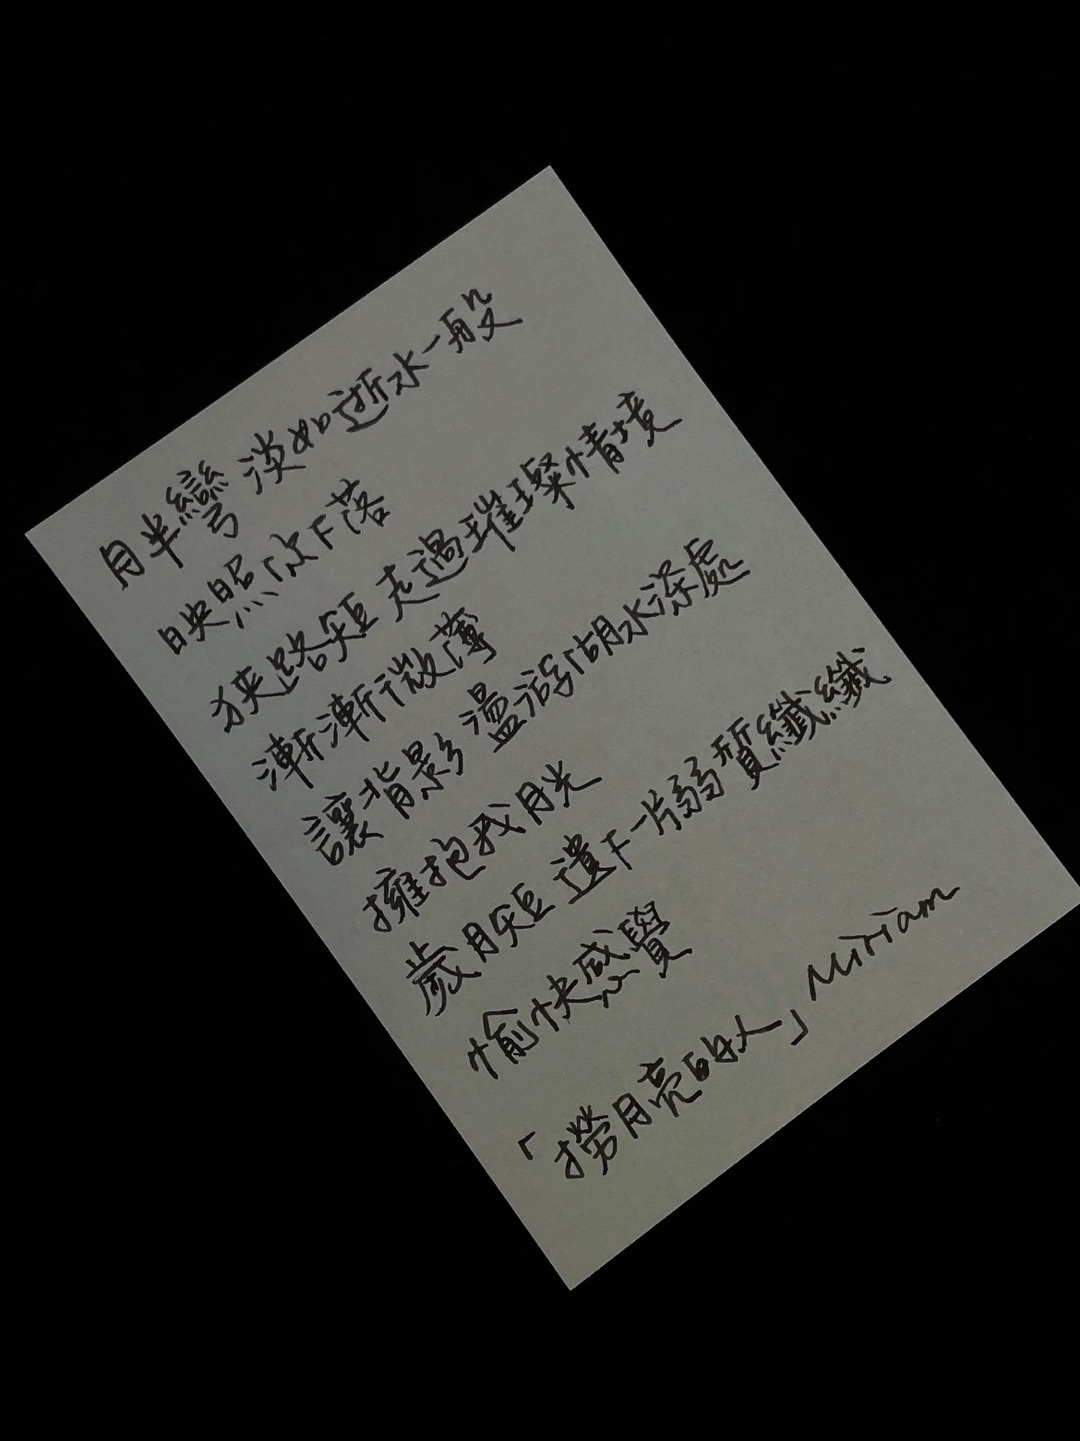 月半彎 淡如逝水一般
映照你下落
狹路短 走過璀璨情境
漸漸微薄
讓背影 盪游湖水深處
擁抱我月光
歲月短 遺下一片弱質纖纖
愉快感覺
「撈月亮的人」Miriam